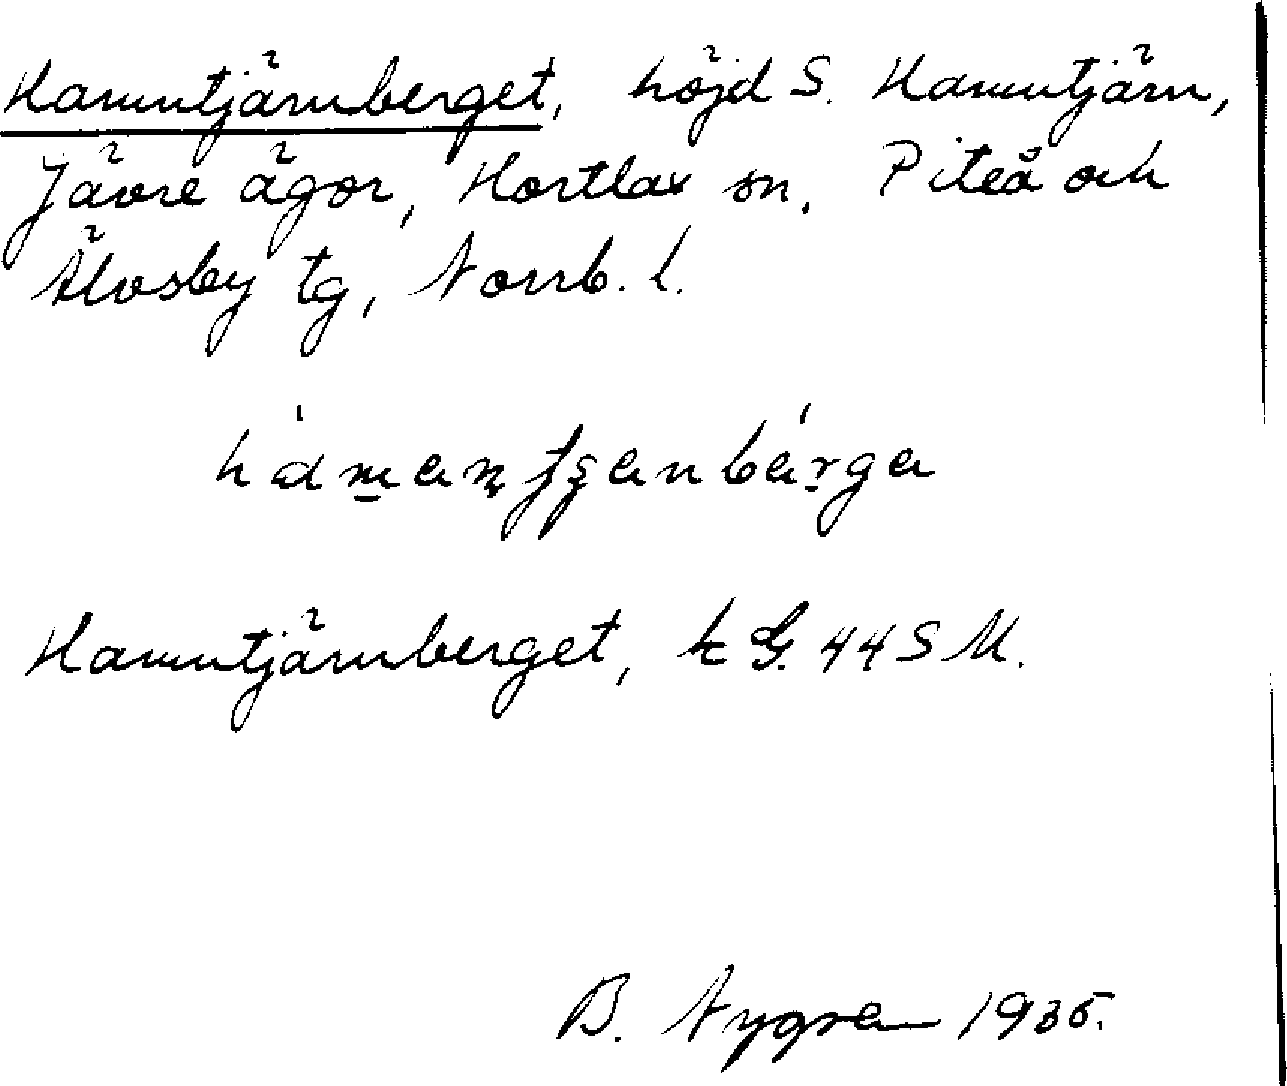 Hamntjärnberget, höjd S. Hamntjärn,
Jävre ägor, Hortlax sn, Piteå och
Älvsby tg, Norrb. l.
Hamntjärnberget, k G. 44 S M.
B. Nygren 1935.